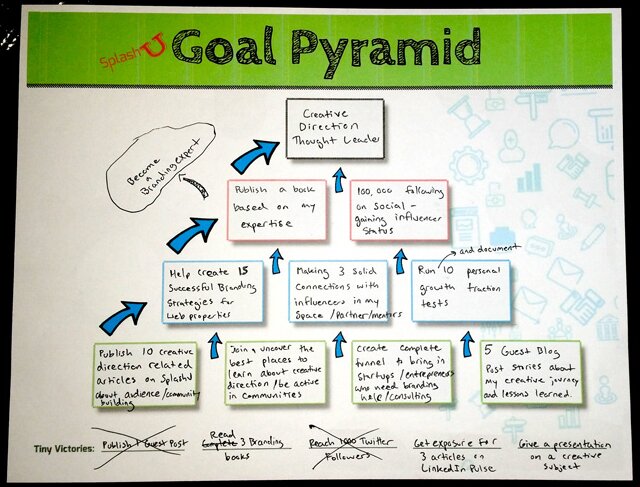 SplashU
Goal Pyramid
Creative
Direction
Thought Leader
Become
a
Branding expert
Publish a book
based on my
expertise
100,000 following
on social -
gaining influencer
status
Help create 15
Successful Branding
Strategies for
Web properties
Making 3 Solid
Connections with
influencers in my
Space / Partner/mentors
and document
Run 10 personal
growth traction
tests
Publish 10 creative
direction related
articles on SplashU
about audience/community
building
Join & uncover the
best places to
learn about creative
direction / be active
in communities
Create complete
funnel to bring in
Startups / entrepreneurs
who need branding
help / consulting
5 Guest Blog
Post stories about
my creative journey
and lessons learned.
Tiny Victories:
Publish 1 Guest Post
Read
Complete 3 Branding
books
Reach 1000 Twitter
Followers
Get exposure for
3 articles on
LinkedIn Pulse
Give a presentation
on a creative
subject